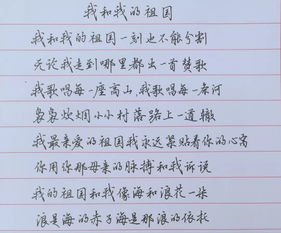 我和我的祖国
我和我的祖国一刻也不能分割
无论我走到哪里都出一首赞歌
我歌唱每一座高山,我歌唱每一条河
袅袅炊烟小小村落路上一道辙
我最亲爱的祖国我永远紧贴着你的心窝
你用你那母亲的脉搏和我诉说
我的祖国和我像海和浪花一朵
浪是海的赤子海是那浪的依托